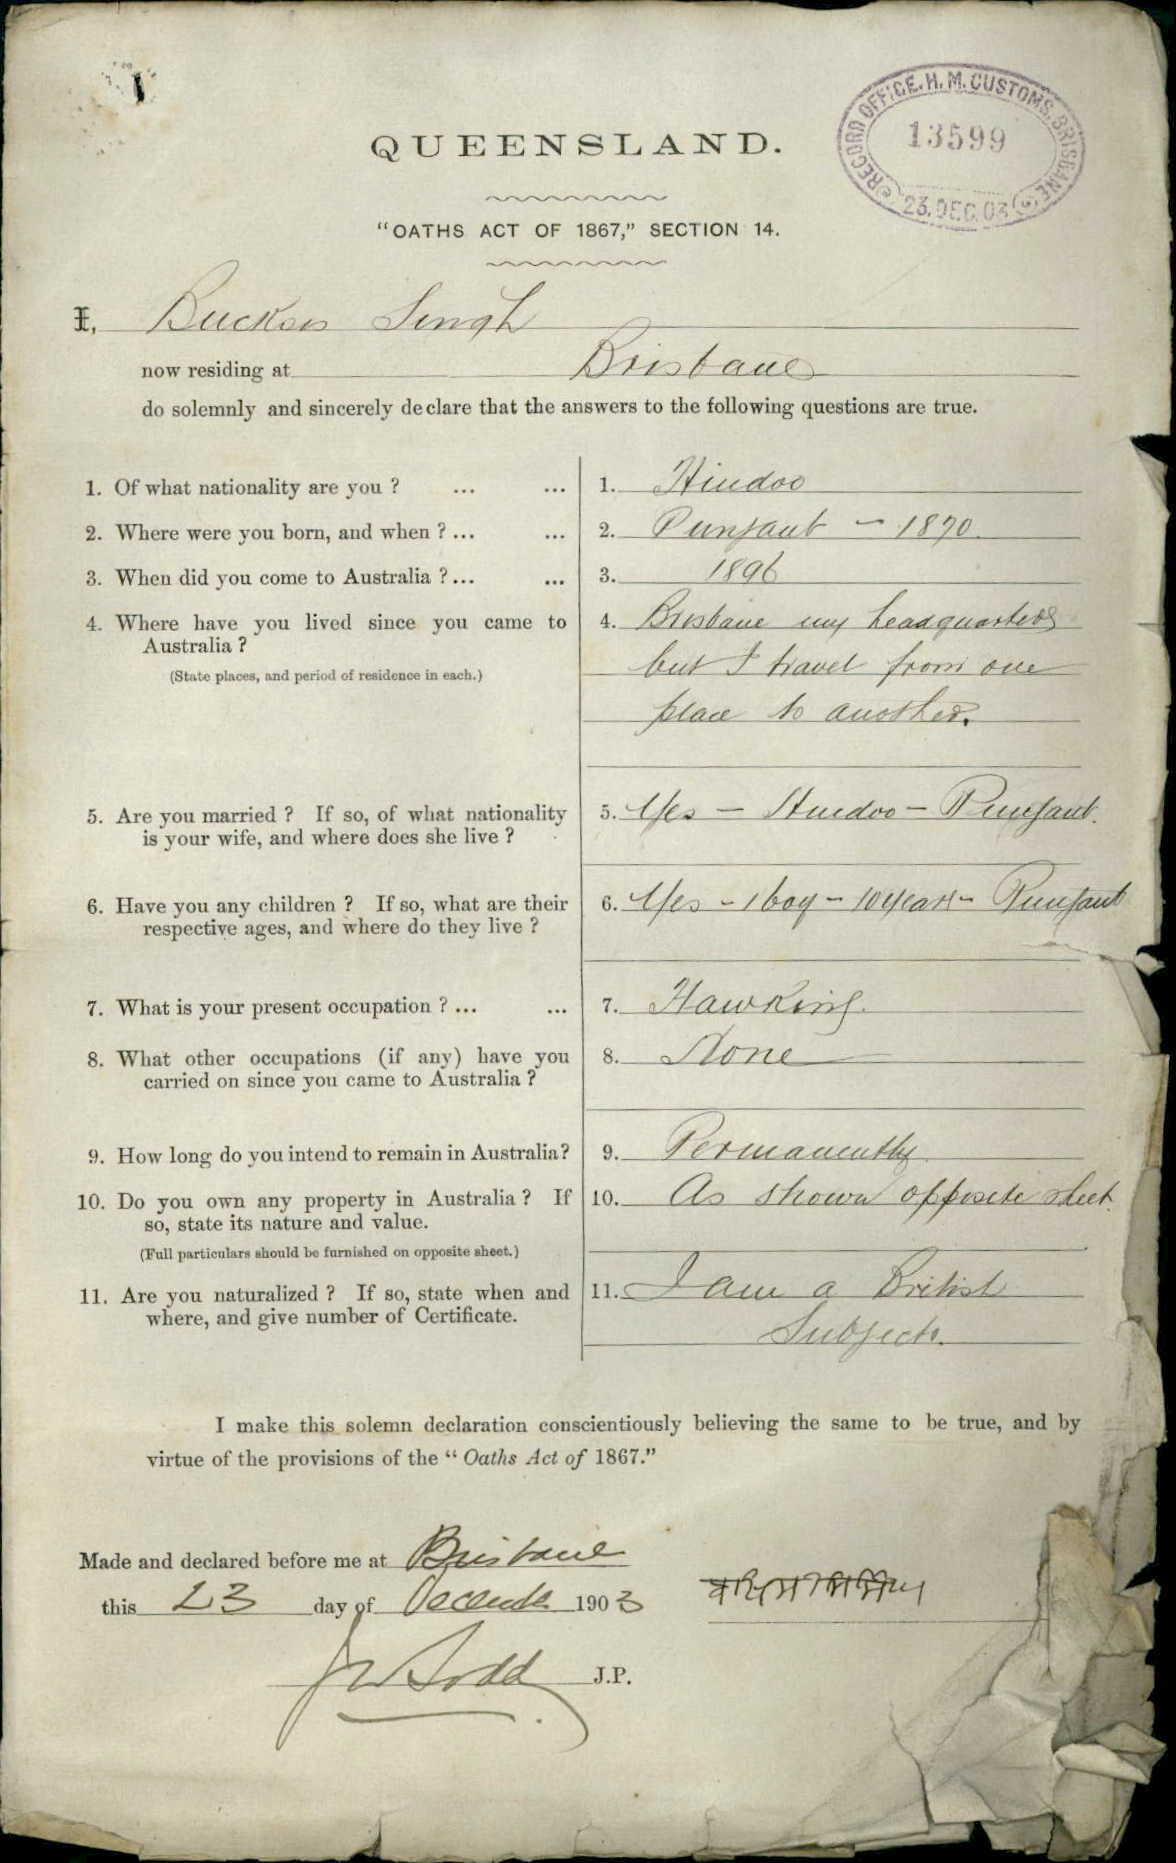 RECORD OFFICE. H. M. CUSTOMS. BRISBANE
13599
23. DEC. 03
QUEENSLAND.
"OATHS ACT OF 1867," SECTION 14.
I, Singh
now residing at Brisbane
do solemnly and sincerely declare that the answers to the following questions are true.
1. Of what nationality are you ? ... ... 1. Hindoo
2. Where were you born, and when ? ... ... 2. Punjaub - 1870.
3. When did you come to Australia ? ... ... 3. 1896
4. Where have you lived since you came to 4. Brisbane my headquarters
Australia ?
(State places, and period of residence in each.) but I travel from one
place to another.
5. Are you married ? If so, of what nationality 5. Yes - Hindoo - Punjaub.
is your wife, and where does she live ?
6. Have you any children ? If so, what are their 6. Yes - 1 boy - 10 years - Punjaub
respective ages, and where do they live ?
7. What is your present occupation ? ... ... 7. Hawking.
8. What other occupations (if any) have you 8. None
carried on since you came to Australia ?
9. How long do you intend to remain in Australia? 9. Permanently
10. Do you own any property in Australia ? If 10. As shown opposite sheet.
so, state its nature and value.
(Full particulars should be furnished on opposite sheet.)
11. Are you naturalized ? If so, state when and 11. I am a British
where, and give number of Certificate. Subject.
I make this solemn declaration conscientiously believing the same to be true, and by
virtue of the provisions of the " Oaths Act of 1867."
Made and declared before me at Brisbane
this 23 day of December 1903
J.P.